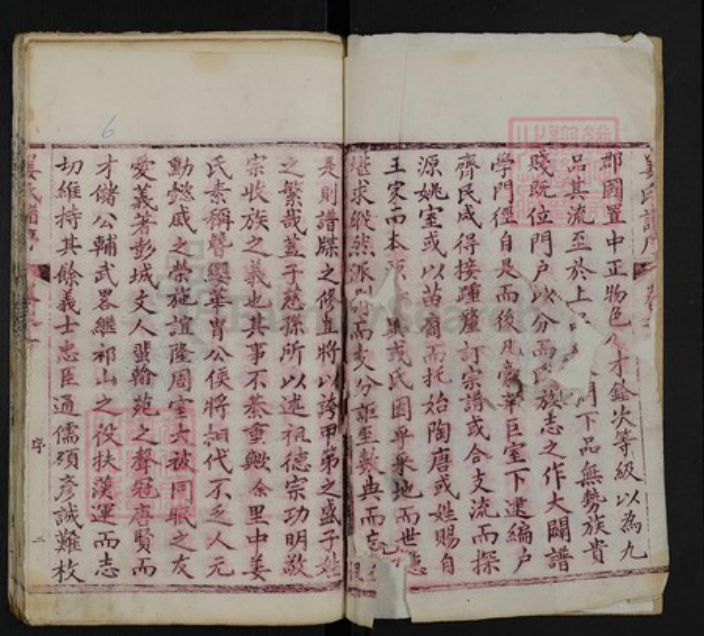 郡國置中正物色人才銓次等級以為九
品其流至於上品無 門下品無勢族貴
賤既位門戶以分而氏族志之作大闢譜
學門徑自是而後凡豪華巨室下逮編戶
齊民咸得接踵釐訂宗譜或合支流而探
源姚室或以苗裔而托始陶唐或姓賜自
王家而本 或氏因乎采地而世
繼求縱然派別而支分詎至數典而忘
是則譜牒之修直將以誇甲第之盛子姓
之繁哉蓋子慈孫所以述祖德宗功明敬
宗收族之義也其事不綦重歟余里中姜
氏素稱簪纓華胄公侯將相代不乏人元
勳懿戚之榮施誼隆周室夫被同眠之友
愛義著彭城文人蜚翰苑之聲冠唐賢而
才儲公輔武畧繼祁山之役扶漢運而志
切維持其餘義士忠臣通儒碩彥誠難枚
姜氏譜序
序
二
6
FamilySearch